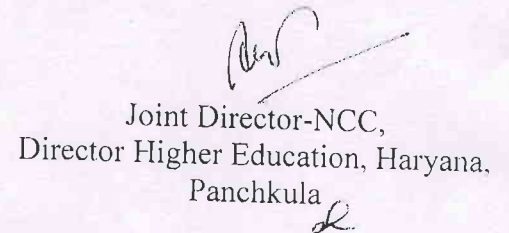 Joint Director-NCC,
Director Higher Education, Haryana,
Panchkula